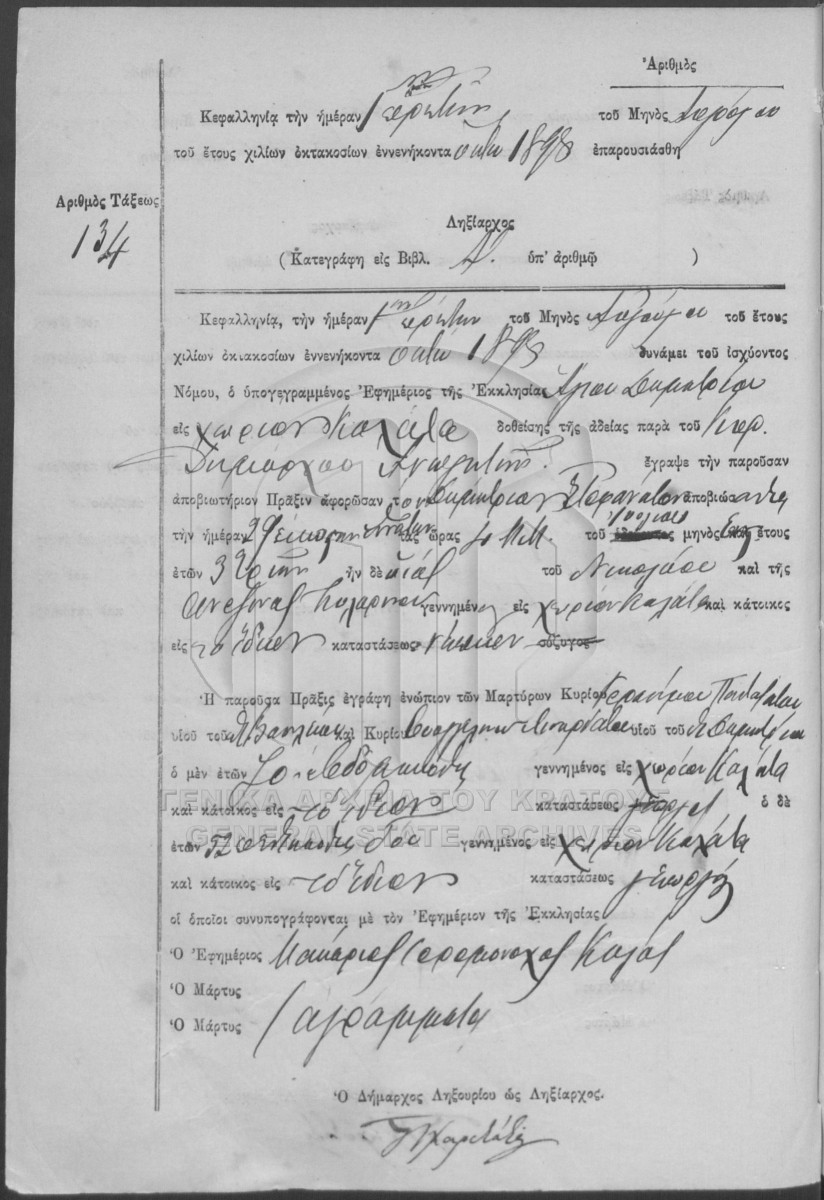 Ἀριθμὸς
Κεφαλληνίᾳ τὴν ἡμέραν 1 πρώτην τοῦ Μηνὸς
τοῦ ἔτους χιλίων ὀκτακοσίων ἐννενήκοντα ὀκτὼ 1898 ἐπαρουσιάσθη
Ἀριθμὸς Τάξεως
134
Ληξίαρχος
(Κατεγράφη εἰς Βιβλ. Α. ὑπ' ἀριθμῷ )
Κεφαλληνίᾳ, τὴν ἡμέραν 1ην πρώτην τοῦ Μηνὸς τοῦ ἔτους
χιλίων ὀκτακοσίων ἐννενήκοντα ὀκτὼ 1898 δυνάμει τοῦ ἰσχύοντος
Νόμου, ὁ ὑπογεγραμμένος Ἐφημέριος τῆς Ἐκκλησίας Ἁγίου Δημητρίου
εἰς χωρίον Καλάτα δοθείσης τῆς ἀδείας παρὰ τοῦ Κυρ.
Δημάρχου ἔγραψε τὴν παροῦσαν
ἀποβιωτήριον Πρᾶξιν ἀφορῶσαν τὸν Δημήτριον ἀποβιώσαντα
τὴν ἡμέραν 29 εἰκοστὴν ἐννάτην τὰς ὥρας Μ.Μ. τοῦ μηνὸς ἔτους
ἐτῶν 3 τριῶν ἣν δὲ υἱὸς τοῦ Νικολάου καὶ τῆς
γεννημένος εἰς χωρίον Καλάτα καὶ κάτοικος
εἰς τὸ ἴδιον καταστάσεως νήπιον σύζυγος
Ἡ παροῦσα Πρᾶξις ἐγράφη ἐνώπιον τῶν Μαρτύρων Κυρίου
υἱοῦ τοῦ Βασιλείου καὶ Κυρίου υἱοῦ τοῦ Δημητρίου
ὁ μὲν ἐτῶν 70 ἑβδομήκοντα γεννημένος εἰς χωρίον Καλάτα
καὶ κάτοικος εἰς τὸ ἴδιον καταστάσεως γεωργὸς ὁ δὲ
ἐτῶν 52 πεντήκοντα δύο γεννημένος εἰς χωρίον Καλάτα
καὶ κάτοικος εἰς τὸ ἴδιον καταστάσεως γεωργὸς
οἱ ὁποῖοι συνυπογράφονται μὲ τὸν Ἐφημέριον τῆς Ἐκκλησίας
Ὁ Ἐφημέριος Μακάριος ἱερομόναχος
Ὁ Μάρτυς
Ὁ Μάρτυς ἀγράμματοι
Ὁ Δήμαρχος Ληξουρίου ὡς Ληξίαρχος.
ΓΕΝΙΚΑ ΑΡΧΕΙΑ ΤΟΥ ΚΡΑΤΟΥΣ
GENERAL STATE ARCHIVES